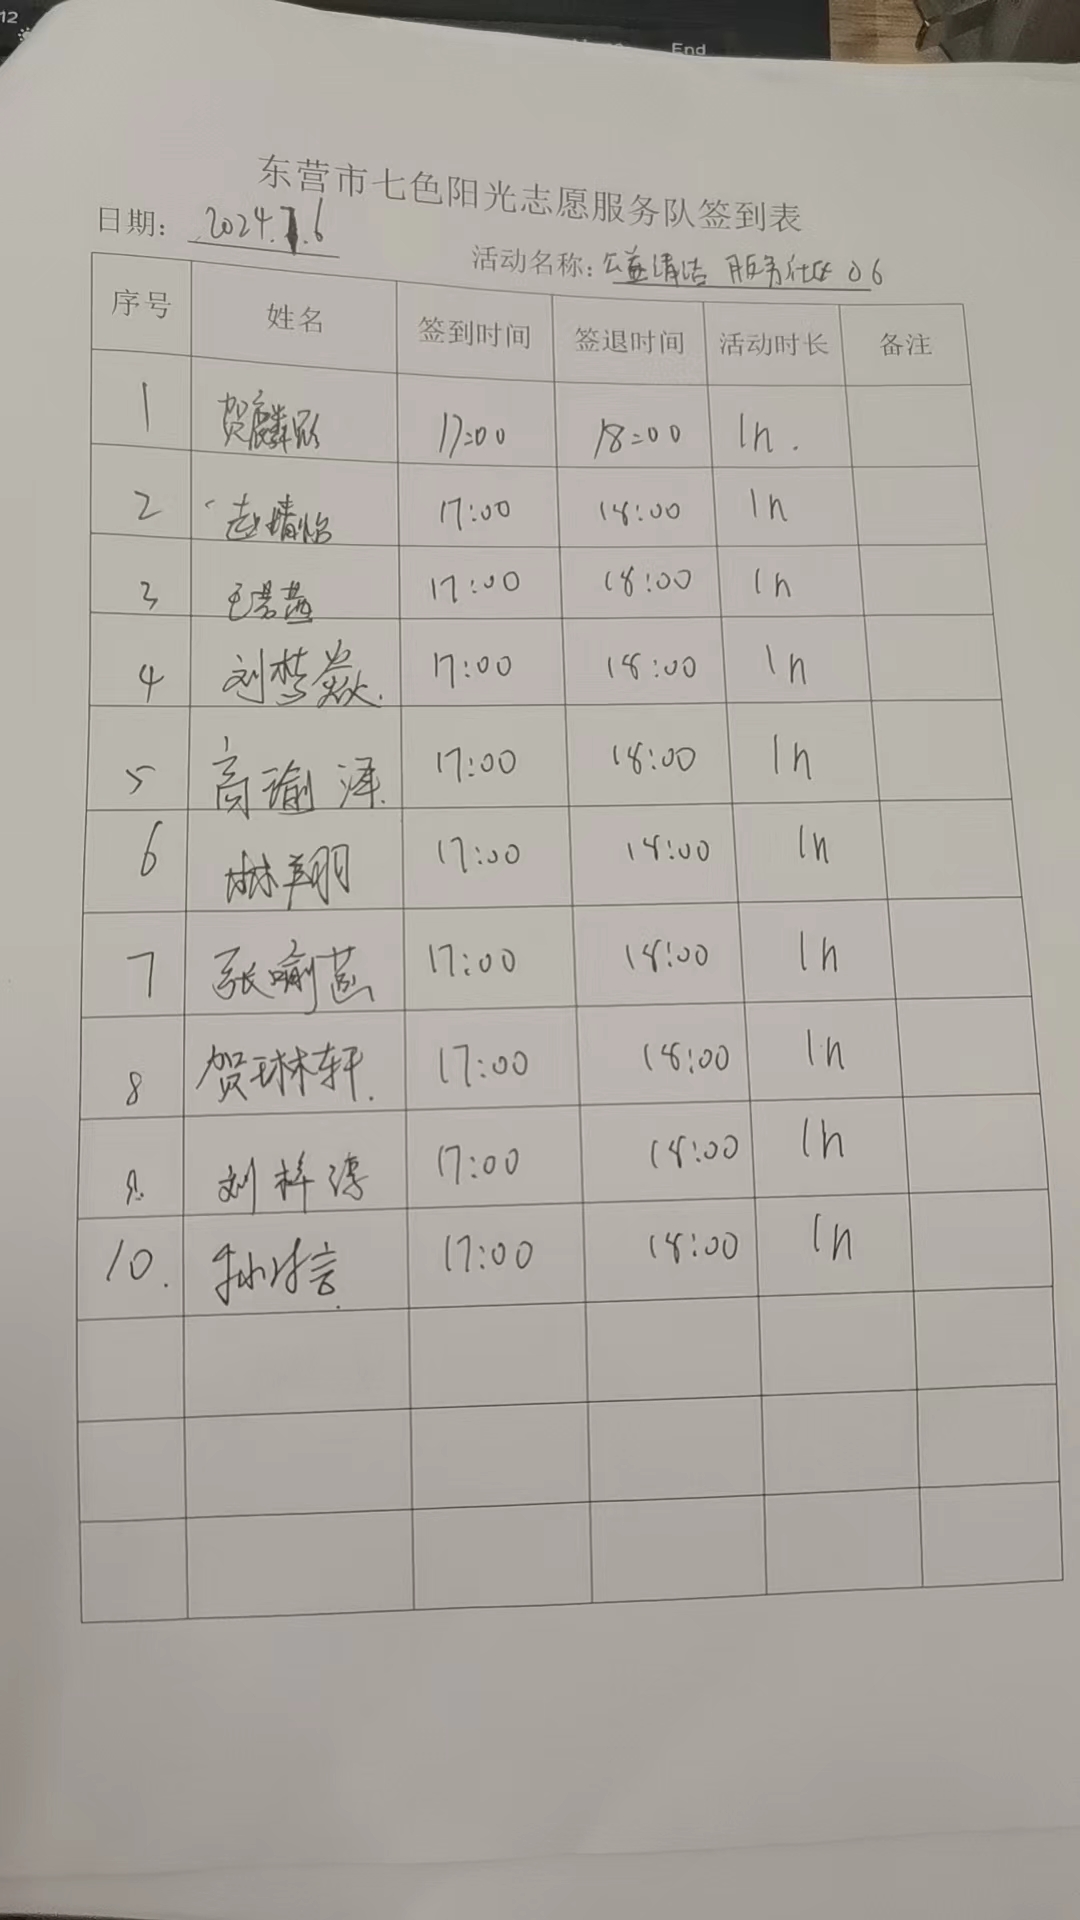 12
End
东营市七色阳光志愿服务队签到表
日期: 2024.7.6
活动名称: 公益清洁 服务社区 06
序号 姓名 签到时间 签退时间 活动时长 备注
1 贺麟 17:00 18:00 1h.
2 赵婧怡 17:00 18:00 1h
3 王若燕 17:00 18:00 1h
4 刘梦焱. 17:00 18:00 1h
5 高瑜泽. 17:00 18:00 1h
6 林翔羽 17:00 18:00 1h
7 张喻茜 17:00 18:00 1h
8 贺琳轩. 17:00 18:00 1h
9. 刘梓涛 17:00 18:00 1h
10. 孙 言. 17:00 18:00 1h